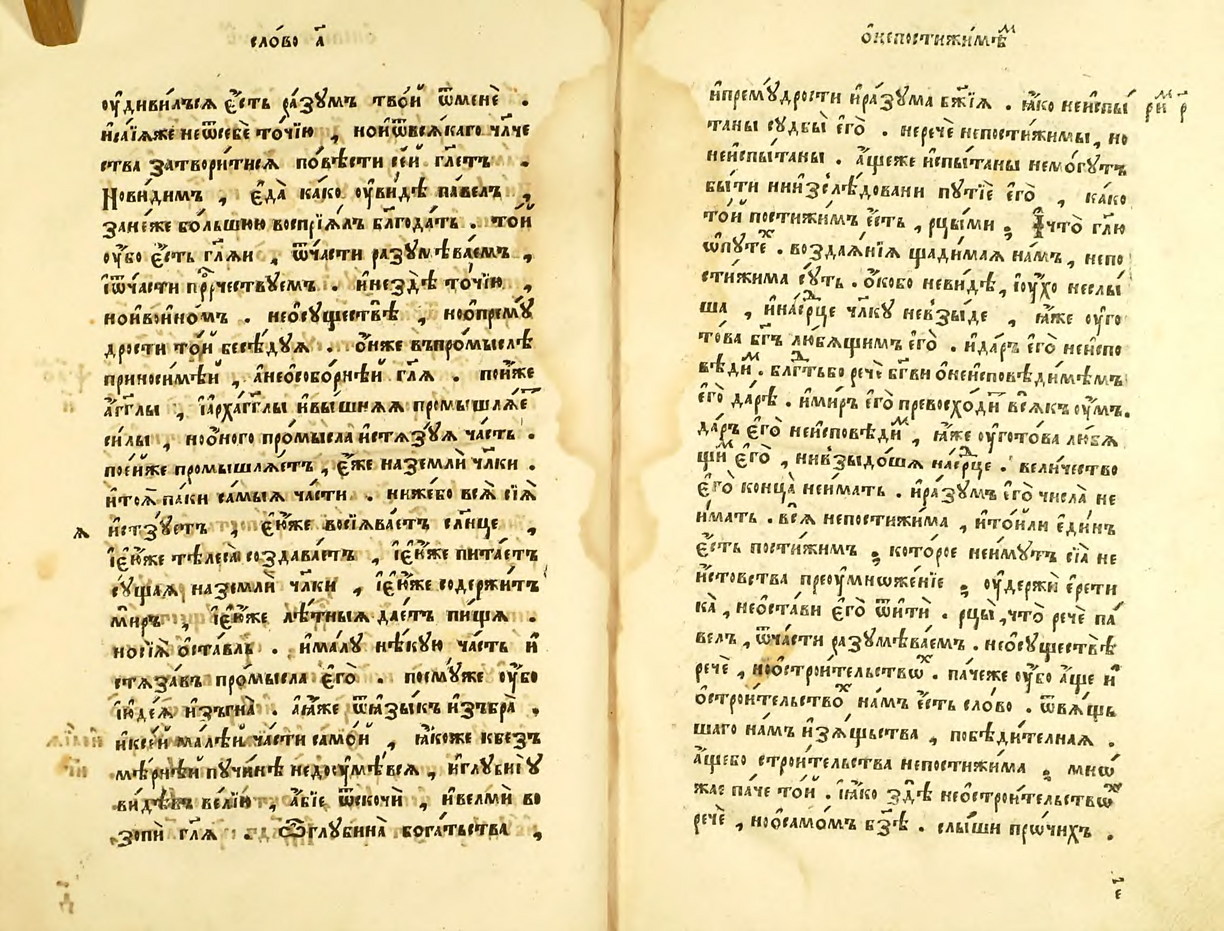 сло́во а҃
ᲂу҆диви́лъсѧ є҆́сть ра́зꙋмъ тво́й ѿменѐ .
и҆са́їѧже неѿсебѐ то́чїю , нои҆ѿвсѧ́каго чл҃че
ства затвори́тисѧ по́вѣсти се́й гл҃етъ .
Нови́димъ , є҆да̀ ка́ко ᲂу҆ви́дѣ па́велъ ,
зане́же бо́льшюю воспрїѧ́лъ бл҃года́ть . то́й
ᲂу҆́бо є҆́сть гл҃ѧи , ѿча́сти разꙋмѣва́емъ ,
і҆ѿча́сти прⷪ҇ро́чествꙋемъ . и҆нездѐ то́чїю ,
нои҆во́и҆но́мъ . нео҆сꙋществѣ̀ , нοо҆премꙋ́
дрости то́й бесѣ́дꙋѧ . о҆́нже въпро́мыслѣ
приноси́мѣй , а҆нео҆собо́рнѣй гл҃ѧ . по́йже
а҆́гг҃лы , і҆а҆рха́гг҃лы и҆вы́шнѧѧ промышлѧ́еⷮ
си́лы , ноо҆́ного про́мысла и҆стѧзꙋ́ѧ ча́сть .
пое́йже промышлѧ́етъ , є҆́же наземлѝ чл҃ки .
и҆тоѧ̀ па́ки са́мыѧ ча́сти . ниже́бо всѧ̀ сїѧ̀
и҆стзꙋ́етъ , є҆́юже восїѧва́етъ сл҃нце ,
ѧ
і҆є҆́юже тѣлеса̀ создава́етъ , і҆є҆́юже пита́етъ
сꙋ́щаѧ наземлѝ чл҃ки , і҆є҆́юже содержи́тъ
ми́ръ , і҆є҆́юже лѣ́тныѧ дае́тъ пи́щѧ .
носїѧ̀ ѡ҆ста́вль . и҆ма́лꙋ нѣ́кꙋю ча́сть и҆
стѧза́въ про́мысла є҆го̀ . посмꙋ́же ᲂу҆́бо
і҆ю҆де́ѧ и҆зъгна̀ . а҆ꙗ҆́же ѿꙗ҆зы́къ и҆зъбра̀ .
и҆ксе́й ма́лѣй ча́сти само́й , ꙗ҆́коже кбезъ
мѣ́рнѣй пꙋчи́нѣ недоᲂу҆мѣ́всѧ , и҆глꙋбинꙋ̀
ви́дѣвъ ве́лїю , а҆́бїе ѿскочѝ , и҆велмѝ во
зопѝ гл҃ѧ . Ѽглꙋбина̀ бога́тьства ,
д҃
о҆непостижи́мѣⷨ
и҆премꙋ́дрости и҆ра́зꙋма бж҃їѧ . ꙗ҆́ко неи҆спы́
риⷨ р
таны сꙋдбы̀ є҆го̀ . неречѐ непостижи́мы , но
неи҆спы́таны . а҆́щеже и҆спы́таны немо́гꙋтъ
бы́ти нии҆зслѣ́довани пꙋтїѐ є҆го̀ , ка́ко
то́й постижи́мъ є҆́сть , рцы́ми ; И҆что̀ гл҃ю
ѡ҆пꙋтеⷯ . воздаѧ́нїѧ щади́маѧ на́мъ , непо
стижи́ма сꙋ́ть . о҆́кобо неви́дѣ , і҆ᲂу҆́хо неслы́
ша , и҆насрⷣце чл҃кꙋ невзы́де , ꙗ҆́же ᲂу҆го
то́ва бг҃ъ лю́бѧщимъ є҆го̀ . и҆да́ръ є҆го̀ неи҆спо
вѣ́диⷨ . блгⷣтьбо речѐ бг҃ви о҆неи҆сповѣди́мѣмъ
є҆го̀ да́рѣ . и҆ми́ръ є҆го̀ превосходѧ́й всѧ́къ ᲂу҆́мъ.
да́ръ є҆го̀ неи҆сповѣ́диⷨ , ꙗ҆́же ᲂу҆гото́ва лю́бѧ
щиⷨ є҆го̀ , нивзыдо́шѧ насрⷣце . вели́чество
є҆го̀ конца̀ неи́мать . и҆ра́зꙋмъ є҆го̀ числа̀ не
и҆́мать . всѧ̀ непостижи́ма , и҆то́йли є҆ди́нъ
є҆́сть постижи́мъ ; кото́рое неи́мꙋтъ сїѧ̀ не
и҆́стовства преᲂу҆множе́нїе ; ᲂу҆держѝ є҆рети
ка̀ , нео҆ста́ви є҆го̀ ѿи҆тѝ . рцы̀ ,что̀ речѐ па́
велъ , ѿча́сти разꙋмѣва́емъ . нео҆сꙋществѣ̀
речѐ , ноо҆строи́тельствѡⷯ . па́чеже ᲂу҆́бо а҆́ще и҆
о҆строи́тельствоⷯ на́мъ є҆́сть сло́во . ѿвѧ́щь
шаго на́мъ и҆зѧ́щьства , побѣди́телнаѧ .
а҆́щебо строи́телства непостижи́ма ; мнѡ́
жае па́че то́й . и҆ꙗ҆́ко здѣ̀ нео҆строи́тельствѡⷯ
речѐ , ноо҆само́мъ бз҃ѣ . слы́ши прѡ́чихъ .
е҃